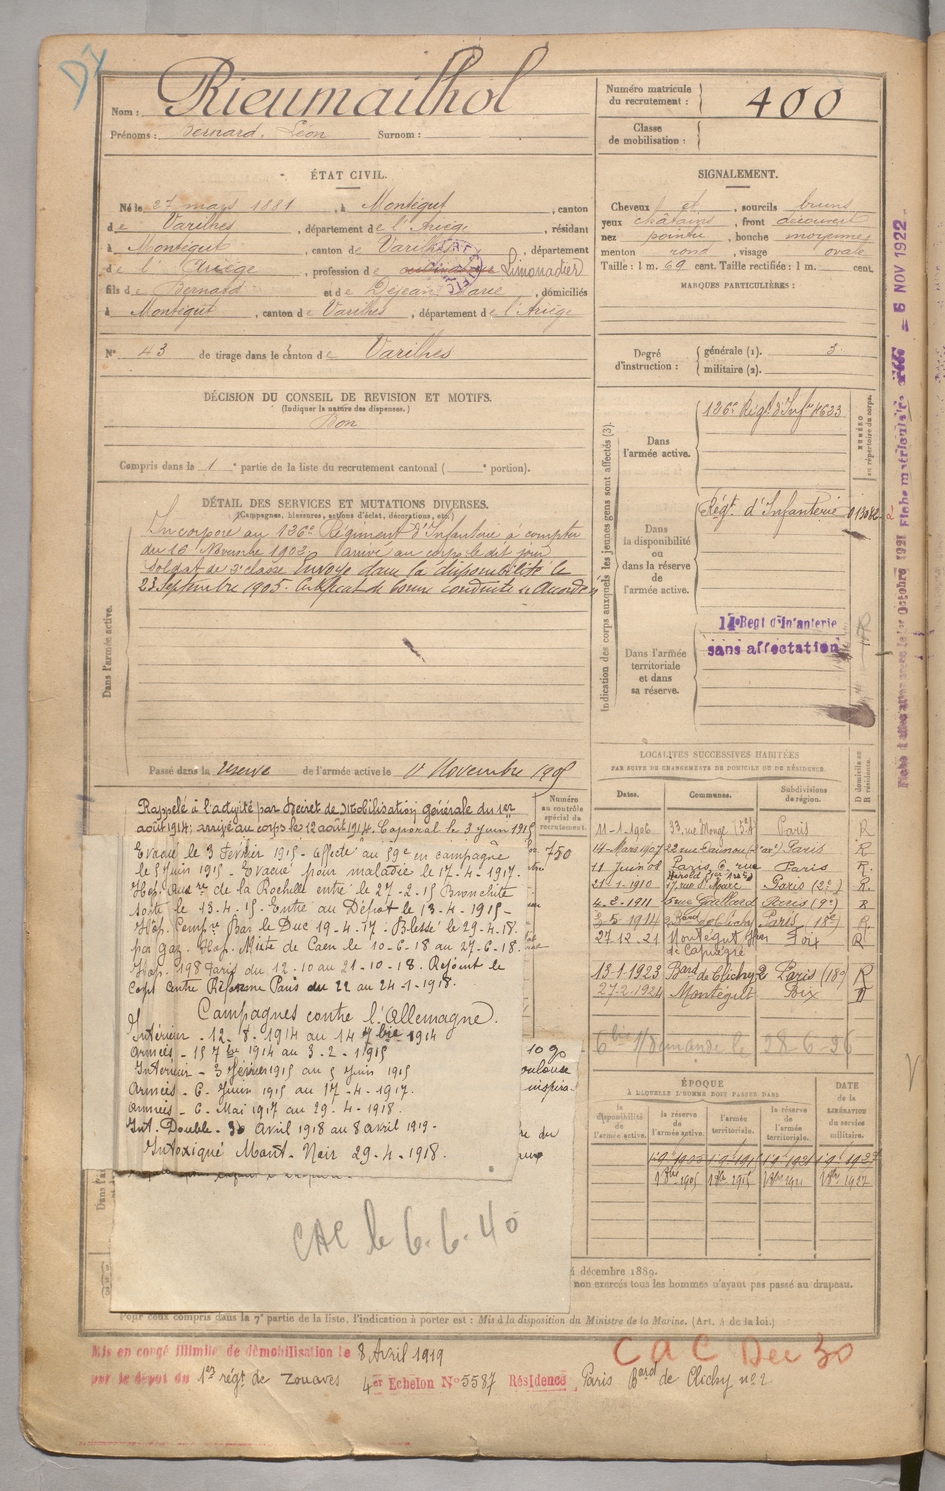 Nom : Rieumailhol
Prénoms : Bernard, Léon Surnom :
Numéro matricule du recrutement : 400
Classe de mobilisation :
ÉTAT CIVIL.
Né le 27 mars 1881, à Montégut, canton
de Varilhes, département de l'Ariège, résidant
à Montégut, canton de Varilhes, département
de l'Ariège, profession de Limonadier
fils de Bernard et de Dejean Marie, domiciliés
à Montégut, canton de Varilhes, département de l'Ariège
N° 43 de tirage dans le canton de Varilhes
SIGNALEMENT.
Cheveux et, sourcils bruns
yeux châtains, front découvert
nez pointu, bouche moyenne
menton rond, visage ovale
Taille : 1 m. 69 cent. Taille rectifiée : 1 m. cent.
MARQUES PARTICULIÈRES :
Degré d'instruction : générale (1). 3
militaire (2).
DÉCISION DU CONSEIL DE REVISION ET MOTIFS.
(Indiquer la nature des dispenses.)
Bon
Compris dans la 1e partie de la liste du recrutement cantonal ( e portion).
DÉTAIL DES SERVICES ET MUTATIONS DIVERSES.
(Campagnes, blessures, actions d'éclat, décorations, etc.)
Dans l'armée active.
Incorporé au 126e Régiment d'Infanterie à compter
du 16 Novembre 1902 arrivé au corps le dit jour
soldat de 2e classe Envoyé dans la disponibilité le
23 Septembre 1905. Certificat de bonne conduite "Accordé"
Passé dans la réserve de l'armée active le 1er Novembre 1905
Indication des corps auxquels les jeunes gens sont affectés (3).
NUMÉRO au répertoire du corps.
Dans l'armée active.
126e Régt d'Infie 4633
Dans la disponibilité ou dans la réserve de l'armée active.
Régt d'Infanterie 013082
Dans l'armée territoriale et dans sa réserve.
14e Regt d'Infanterie
sans affectation
Numéro au contrôle spécial du recrutement.
750
Rappelé à l'activité par Décret de Mobilisation générale du 1er
août 1914; arrivé au corps le 12 août 1914. Caporal le 3 Juin 1915
Evacué le 3 Février 1915 - affecté au 59e en campagne
le 5 Juin 1915 - Evacué pour maladie le 17-4-1917.
Hop. de la Rochelle entré le 27-2-15 Bronchite
sorti le 13-4-15. Entré au Dépôt le 13-4-1915 -
Hop. temp. Bar le Duc 19-4-17. Blessé le 29-4-18.
par gaz. Hop. Mixte de Caen le 10-6-18 au 27-6-18.
Hop. 198 Paris du 12-10 au 21-10-18. Rejoint le
Corps centre Réforme Paris du 22 au 24-1-1918.
Campagnes contre l'Allemagne.
Intérieur - 12-8-1914 au 14 7bre 1914
Armées - 15 7bre 1914 au 3-2-1915
Intérieur - 3 février 1915 au 5 Juin 1915
Armées - 6 Juin 1915 au 17-4-1917.
Armées - 6 Mai 1917 au 29-4-1918.
Int. Double - 30 Avril 1918 au 8 Avril 1919-
Intoxiqué Mont-Noir 29-4-1918.
CAC le 6.6.40
LOCALITÉS SUCCESSIVES HABITÉES
PAR SUITE DE CHANGEMENTS DE DOMICILE OU DE RÉSIDENCE.
Dates. Communes. Subdivisions de région. D domicile ou R résidence.
11-1-1906 33, rue Monge (5e) Paris R
14 Mars 1907 22 rue Daunou (2e arr) Paris R
11 Juin 08 Paris, 6, rue Hérold Paris R.
21-1-1910 17, rue St Marc Paris (2e) R.
4-8-1911 Paris (9e) R
3-5-1914 2 Band de Clichy Paris (18e) R
27.12.21 Montégut Foix R
13.1.1923 Band de Clichy 2 Paris (18e) R
27-2-1924 Montégut Foix D
28-6-26
ÉPOQUE
À LAQUELLE L'HOMME DOIT PASSER DANS
la disponibilité de l'armée active. la réserve de l'armée active. l'armée territoriale. la réserve de l'armée territoriale.
DATE de la LIBÉRATION du service militaire.
4 décembre 1889.
non exercés tous les hommes n'ayant pas passé au drapeau.
Pour ceux compris dans la 7e partie de la liste, l'indication à porter est : Mis à la disposition du Ministre de la Marine. (Art. 4 de la loi.)
Mis en congé illimité de démobilisation le 8 Avril 1919
par le dépôt du 1er régt de Zouaves 4e Echelon N° 5587 Résidence Paris Bard de Clichy n° 2
CAC Dec 30